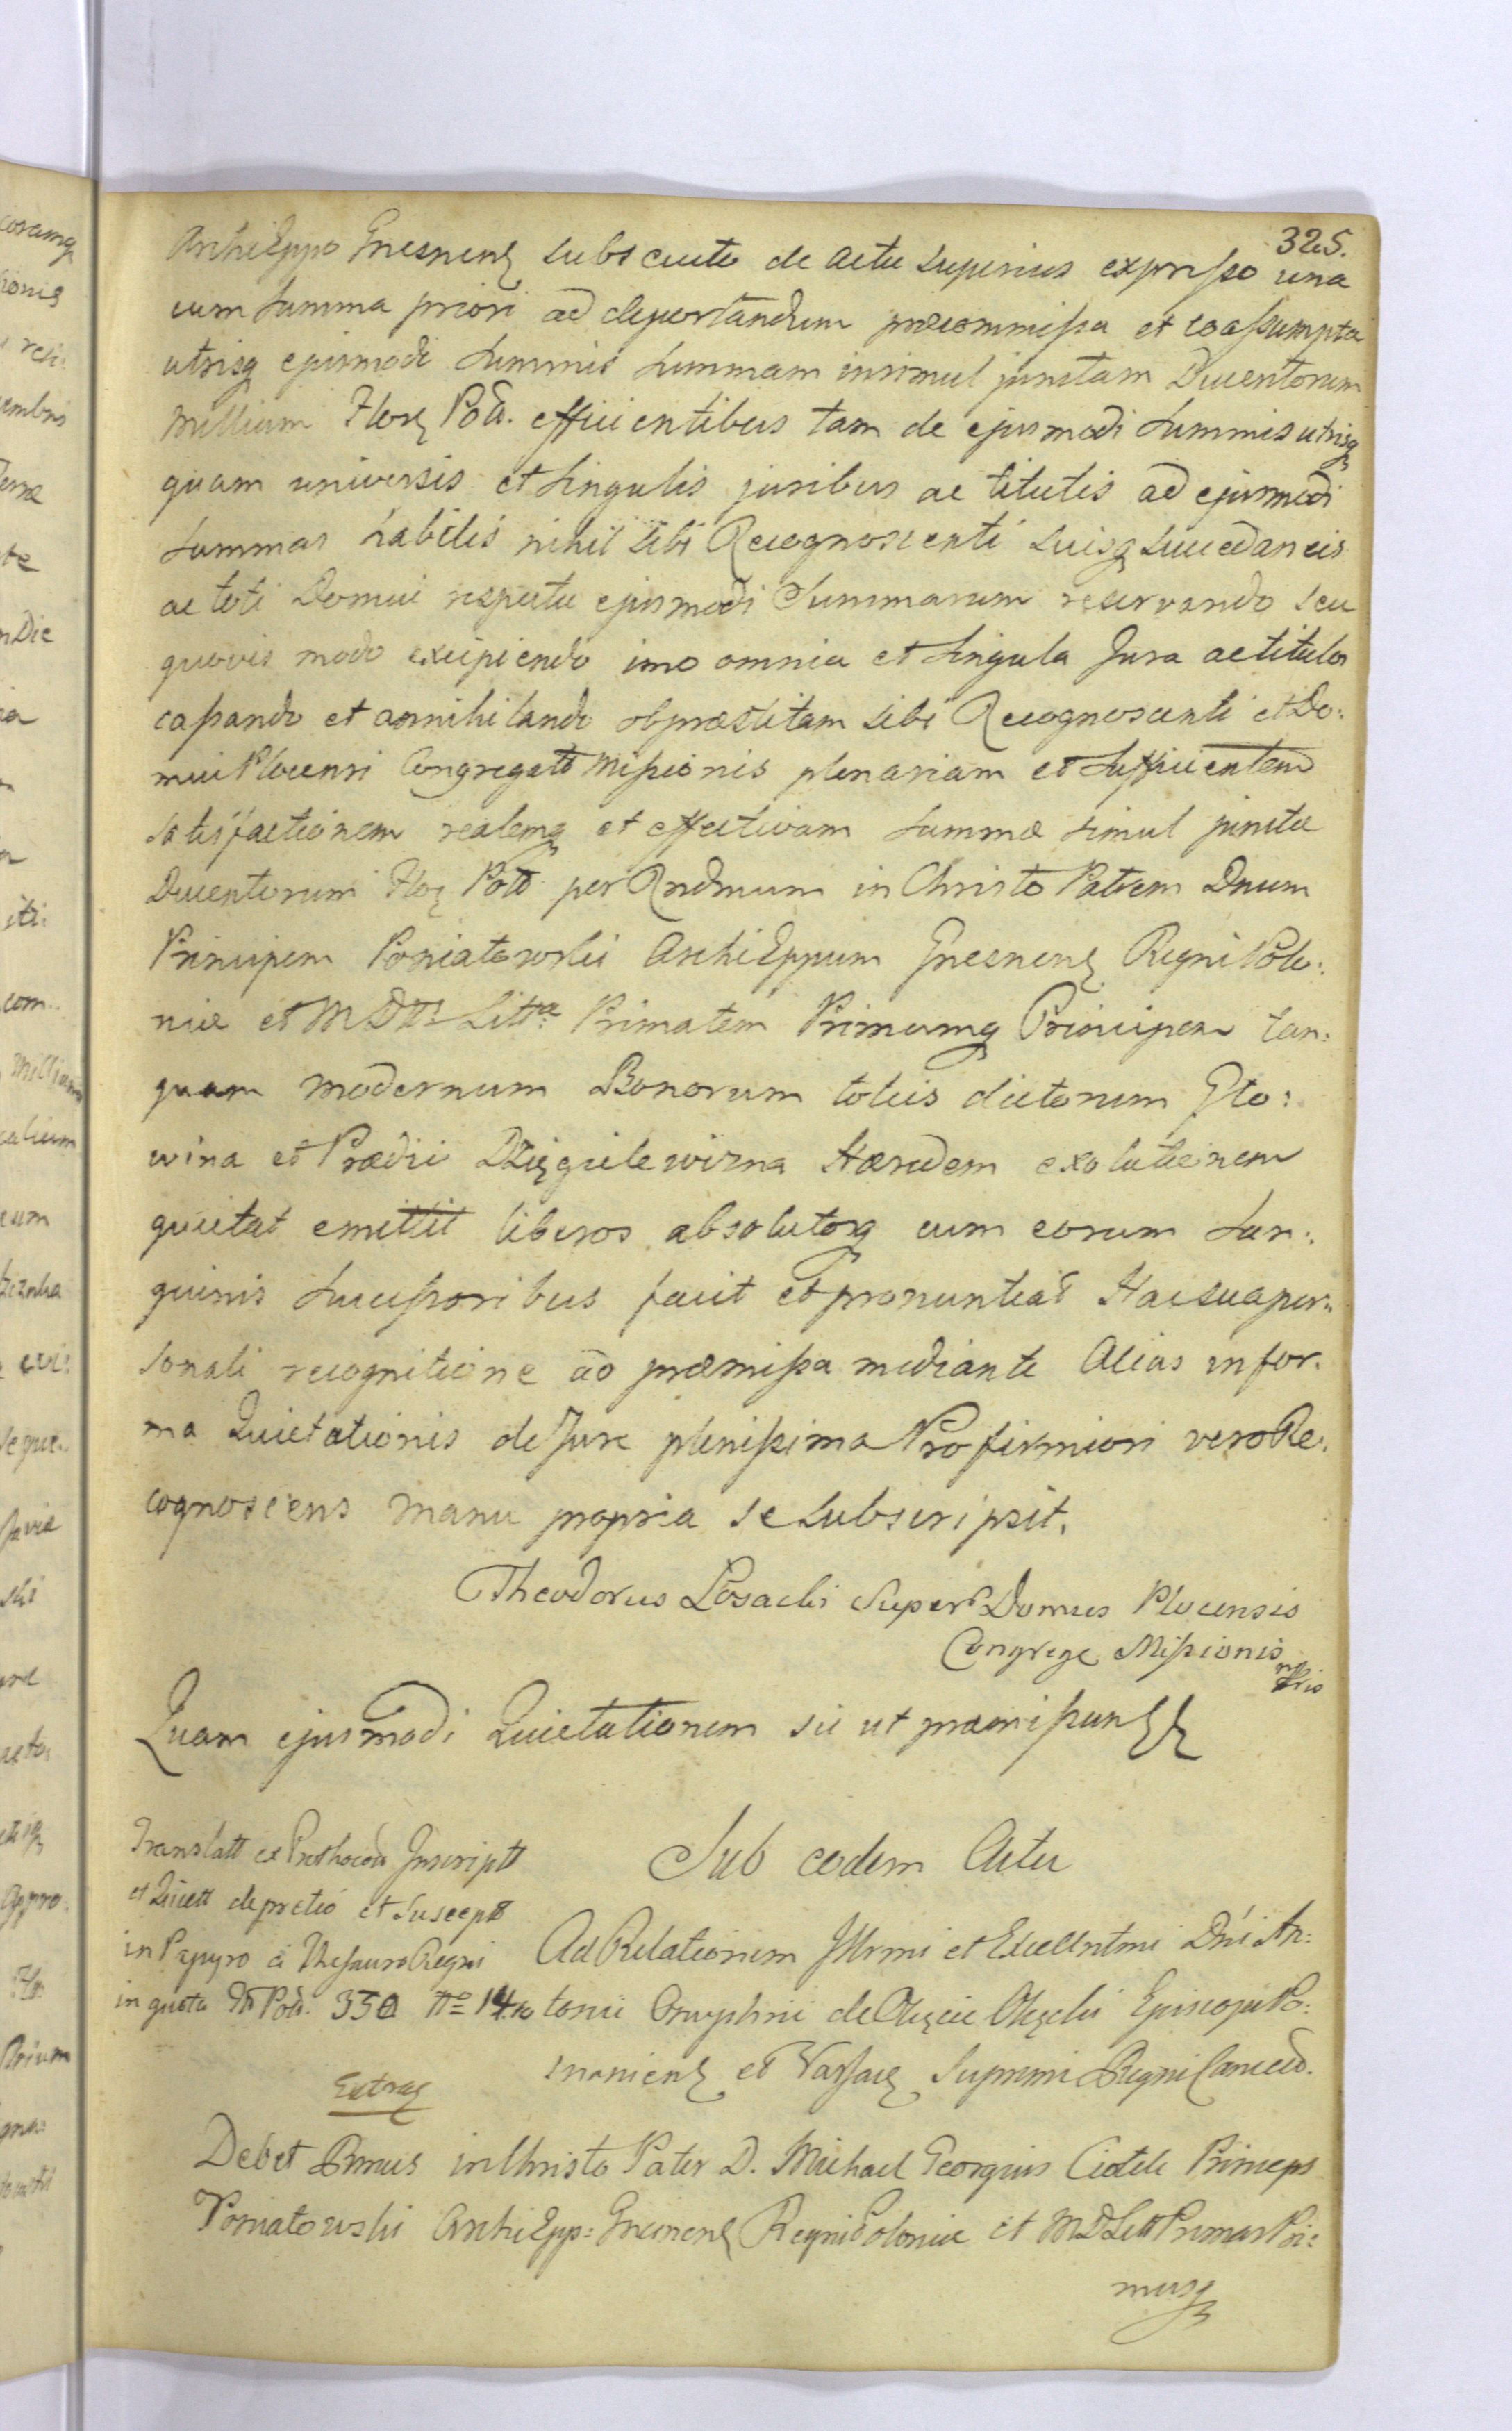 325.
ArchiEppo Gnesnenς subscento de actu superius expresso una
cum summa priori ad deportandum præcommissa et coassumpta
utrisq ejusmodi summis summam insimul junctam Ducentorum
millium Florς Poll. efficientibus tam de ejusmodi summis utrisq
quam universis et singulis juribus ac titulis ad ejusmodi
summas habitis nihil sibi Recognoscenti suisq succedaneis
ac toti Domui respectu ejusmodi Summarum reservando seu
quovis modo excipiendo imo omnia et singula Jura ac titulos
cassando et annihilando ob præstitam sibi Recognoscenti et Do:
mui Plocensi Congregatt Missionis plenariam et sufficientem
satisfactionem realemq et effectivam summæ simul junctæ
Ducentorum Floς Poll per Rndmum in Christo Patrem Dnum
Principem Poniatowski ArchiEppum Gnesnenς Regni Polo:
niæ et M D tt: Litt: Primatem Primumq Principem tan:
quam modernum Bonorum toties dictorum Glo:
wina et Prædii Dzięgielewizna Hæredem exolutionem
quietat emittit liberos absolutosq cum eorum San:
guinis Successoribus facit et pronuntiat Hac sua per:
sonali recognitione ad præmissa mediante Alias in for:
ma Quietationis de Jure plenissima Pro firmiori vero Re:
cognoscens manu propria se subscripsit.
Theodorus Posacki Superr Domus Plocensis
Congrege Missionis
Quam ejusmodi Quietationem sic ut præmissum
Translatt ex Prothocoll Inscriptt
et Quiett depretio et suscept
in Papyro à Thesauro Regni
in quota ff Poll. 350
Extraς
Sub eodem Actu
Ad Relationem Illrmi et Excellntmi Dñi An:
tonii Onuphrii de Okęcie Okęcki Episcopi Po:
snaniensς et Varsavς Supremi Regni Cancell.
Debet Rmus in Christo Pater D. Michael Georgius Ciołek Princeps
Poniatowski ArchiEpp: Gnesnenς Regni Poloniæ et M D Litt Primas Pri:
musq